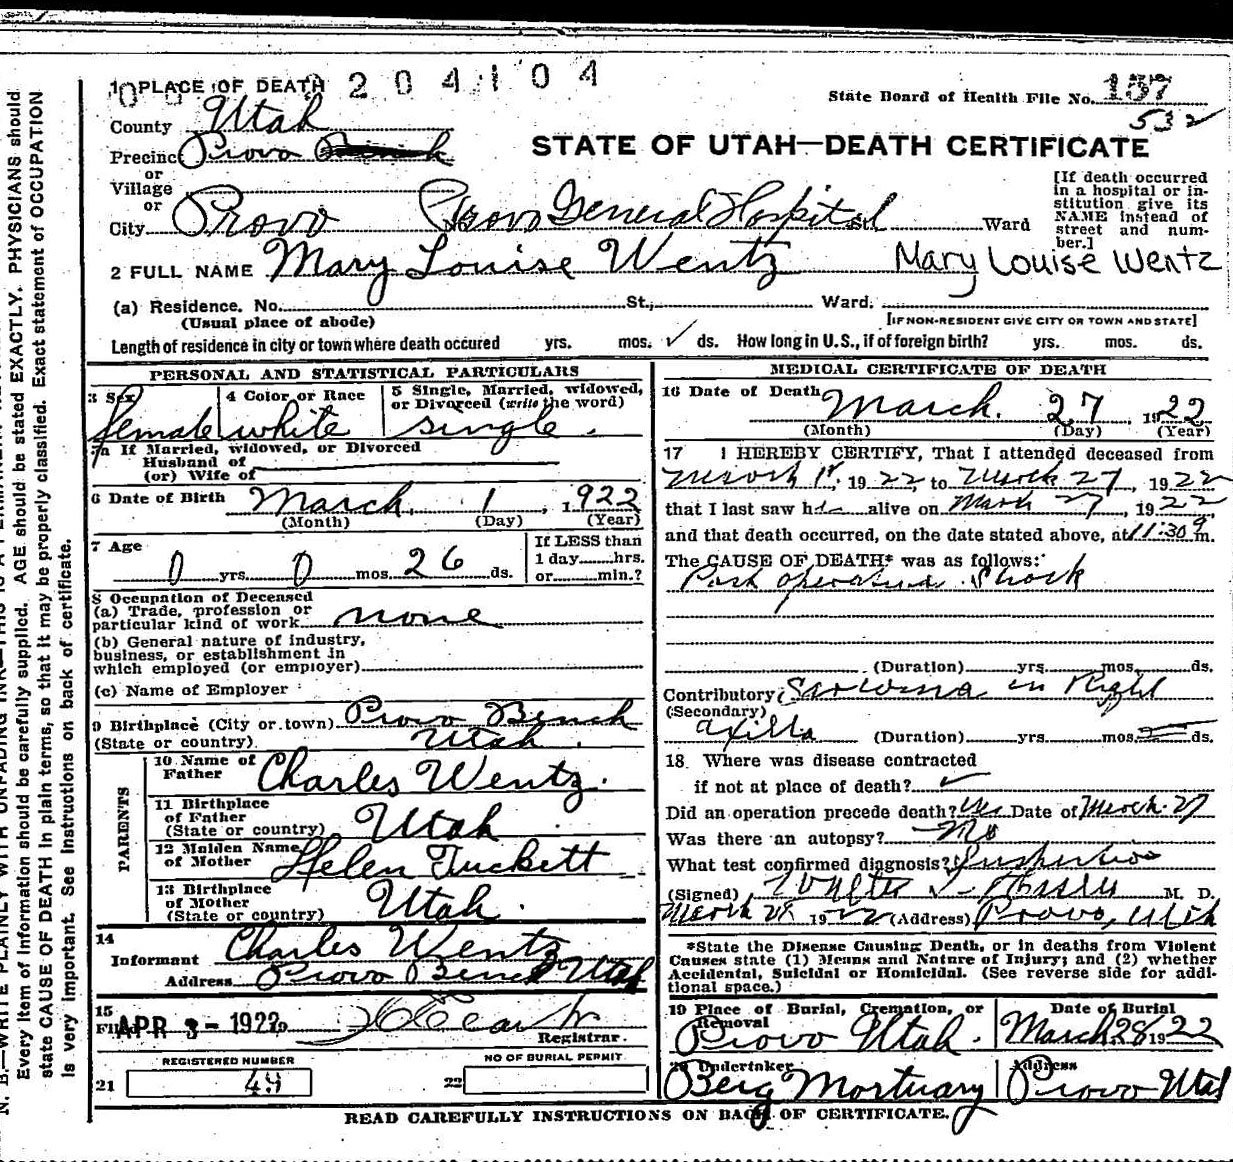 1 PLACE OF DEATH 204104
State Board of Health File No. 157
532
County Utah
STATE OF UTAH—DEATH CERTIFICATE
Precinct Provo
or
Village
or
City Provo Provo General Hospital St. Ward
[If death occurred in a hospital or institution give its NAME instead of street and number.]
2 FULL NAME Mary Louise Wentz Mary Louise Wentz
(a) Residence. No. St., Ward.
(Usual place of abode) [IF NON-RESIDENT GIVE CITY OR TOWN AND STATE]
Length of residence in city or town where death occured yrs. mos. ds. How long in U.S., if of foreign birth? yrs. mos. ds.
PERSONAL AND STATISTICAL PARTICULARS
3 Sex 4 Color or Race 5 Single, Married, widowed,
or Divorced (write the word)
female white single.
5a If Married, widowed, or Divorced
Husband of
(or) Wife of
6 Date of Birth March 1, 1922
(Month) (Day) (Year)
7 Age If LESS than
1 day hrs.
0 yrs. 0 mos. 26 ds. or min.?
8 Occupation of Deceased
(a) Trade, profession or
particular kind of work none
(b) General nature of industry,
business, or establishment in
which employed (or employer)
(c) Name of Employer
9 Birthplace (City or town) Provo Bench
(State or country) Utah.
PARENTS
10 Name of
Father Charles Wentz.
11 Birthplace
of Father
(State or country) Utah
12 Maiden Name
of Mother Helen Tuckett
13 Birthplace
of Mother
(State or country) Utah.
14
Informant Charles Wentz
Address Provo Bench Utah
15
Filed APR 3 - 1922
Registrar.
REGISTERED NUMBER NO OF BURIAL PERMIT
21 49 22
MEDICAL CERTIFICATE OF DEATH
16 Date of Death March. 27 1922
(Month) (Day) (Year)
17 I HEREBY CERTIFY, That I attended deceased from
March 1st, 1922, to March 27, 1922
that I last saw her alive on March 27, 1922
and that death occurred, on the date stated above, at 11:30 m.
The CAUSE OF DEATH* was as follows:
Post operative Shock
(Duration) yrs. mos. ds.
Contributory Sarcoma in Right
(Secondary)
axilla (Duration) yrs. mos. ds.
18. Where was disease contracted
if not at place of death?
Did an operation precede death? Yes Date of March 27
Was there an autopsy? No
What test confirmed diagnosis? Inspection
(Signed) Walter M. D.
March 28 1922 (Address) Provo, Utah
*State the Disease Causing Death, or in deaths from Violent
Causes state (1) Means and Nature of Injury; and (2) whether
Accidental, Suicidal or Homicidal. (See reverse side for additional space.)
19 Place of Burial, Cremation, or Removal Date of Burial
Provo Utah. March 28 1922
20 Undertaker Address
Berg Mortuary Provo Utah
READ CAREFULLY INSTRUCTIONS ON BACK OF CERTIFICATE.
Every item of information should be carefully supplied. AGE should be stated EXACTLY. PHYSICIANS should
state CAUSE OF DEATH in plain terms, so that it may be properly classified. Exact statement of OCCUPATION
is very important. See instructions on back of certificate.